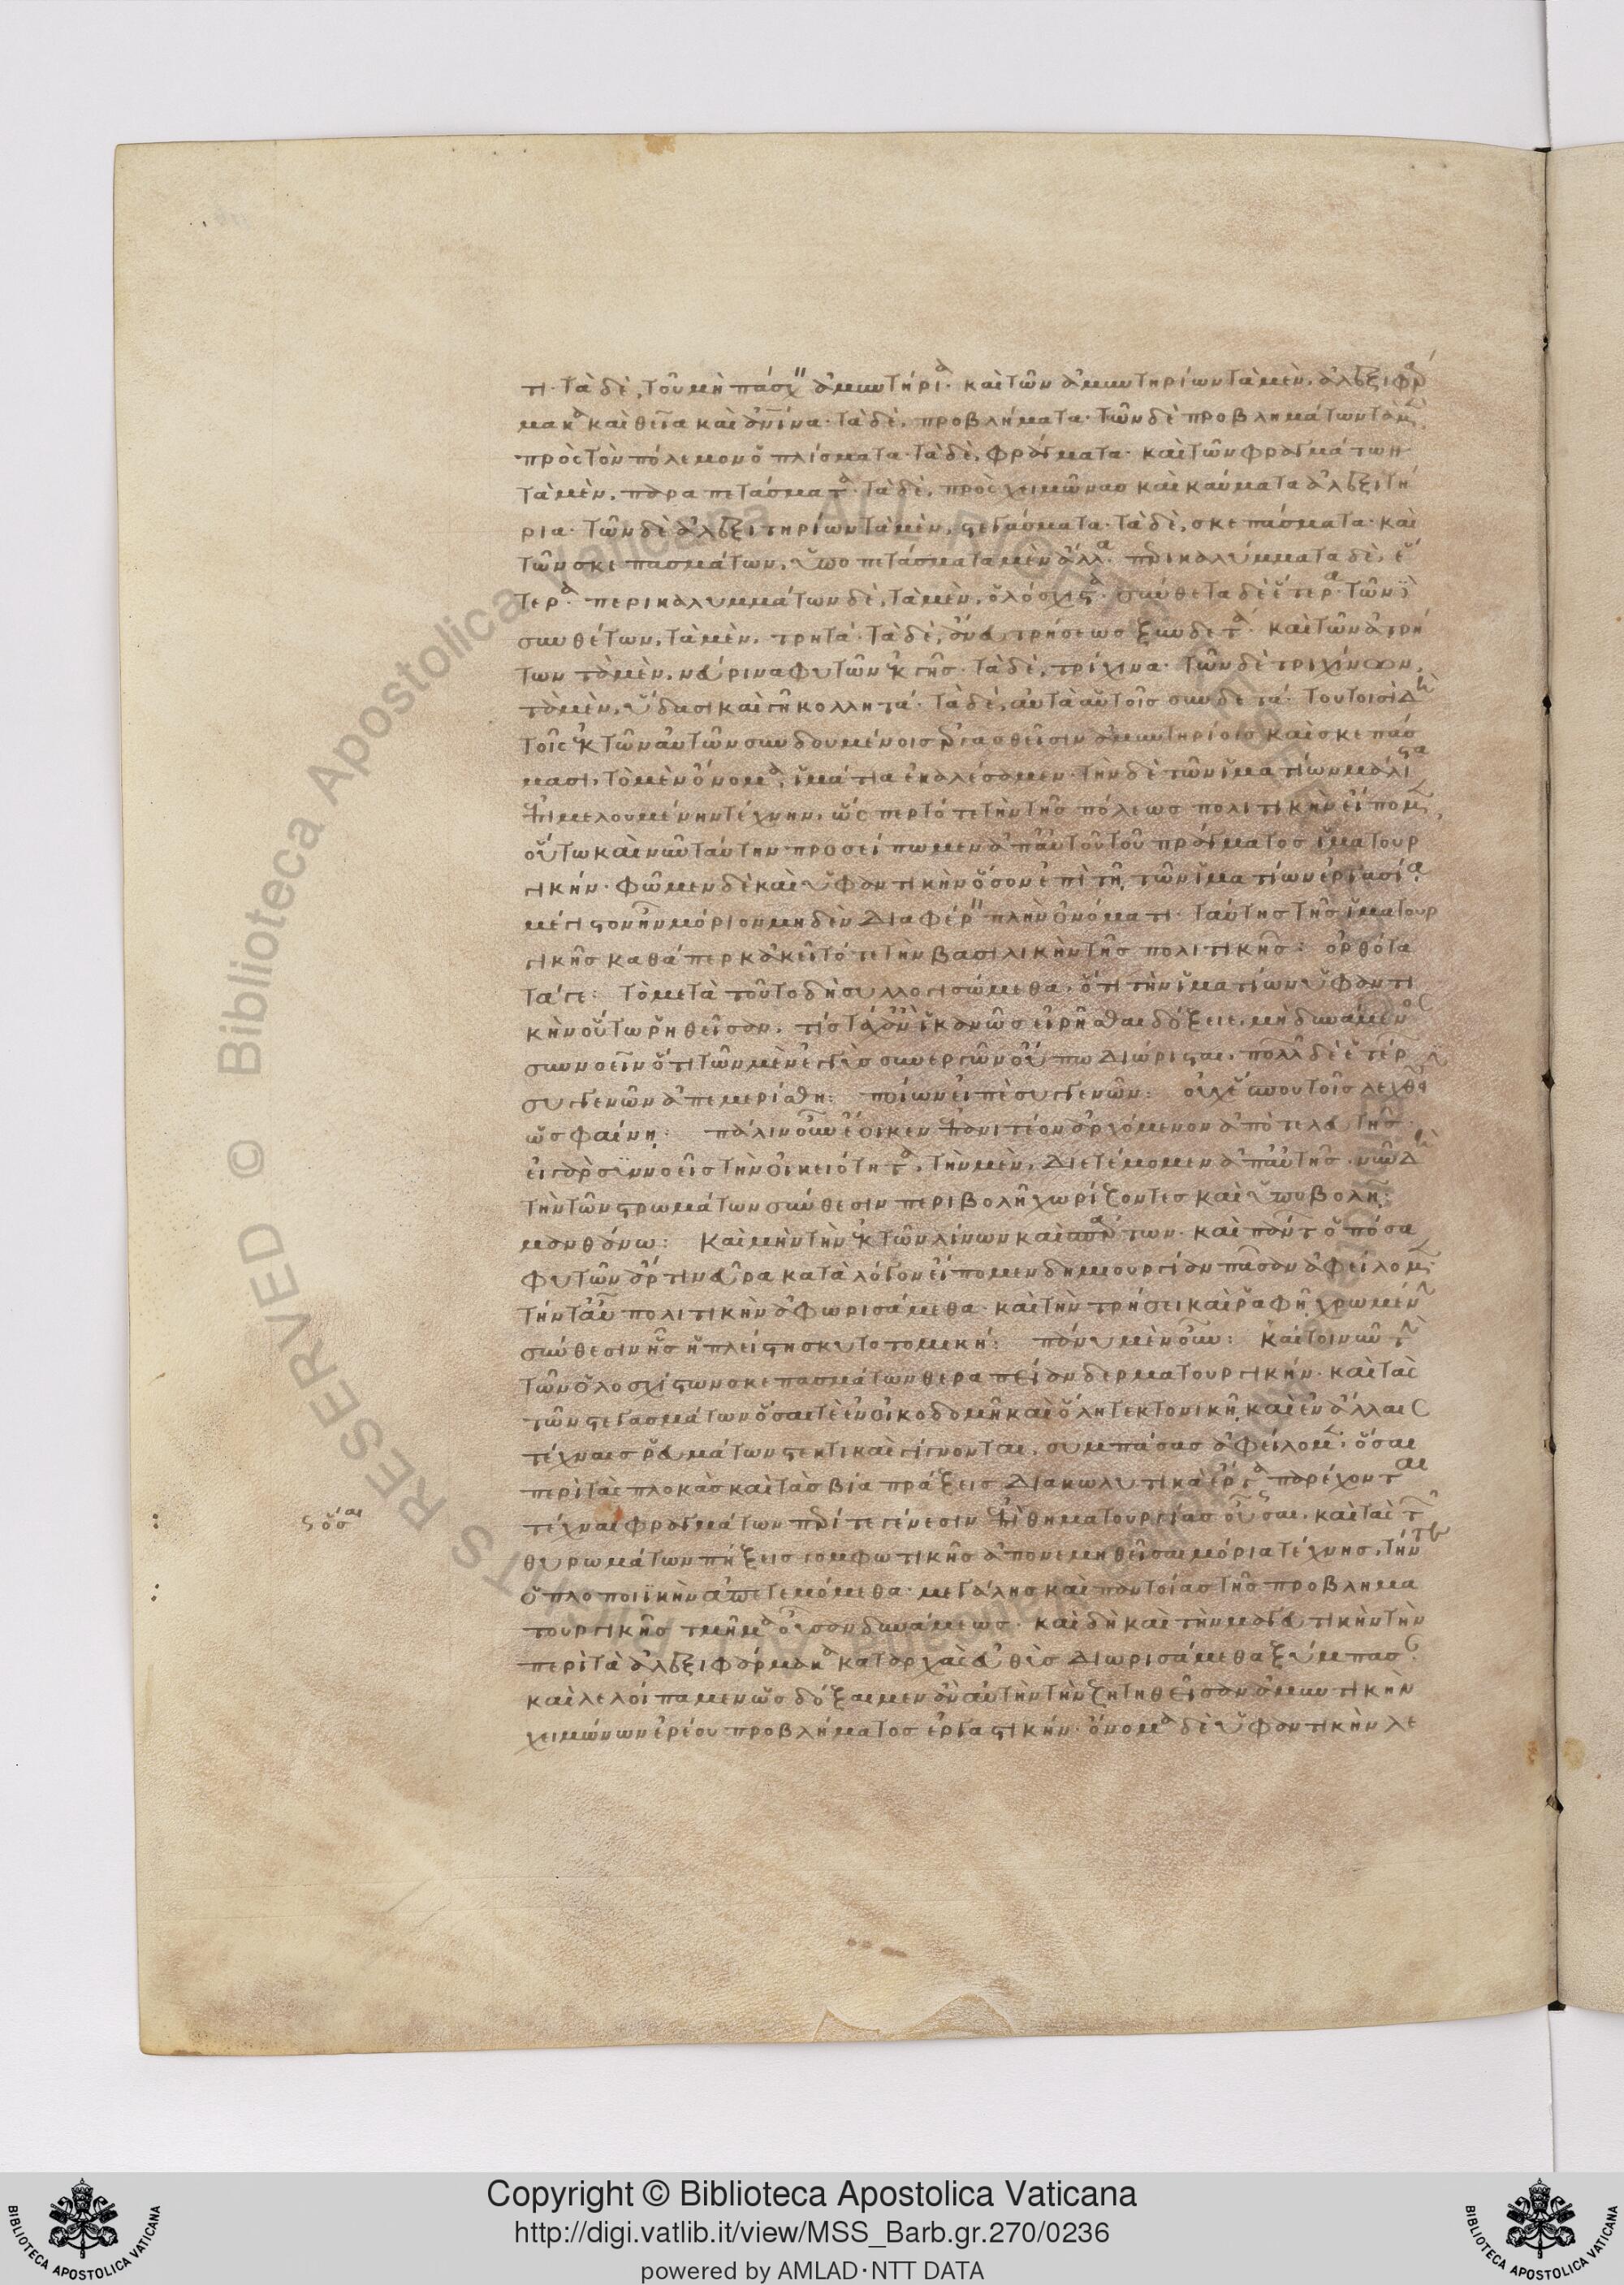 τι· τὰ δὲ, τοῦ μὴ πάσχειν ἀμυντήρια· καὶ τῶν ἀμυντηρίων τὰ μὲν, ἀλεξιφάρ
μακα καὶ θεῖα καὶ ἀνῖνα· τὰ δὲ, προβλήματα· τῶν δὲ προβλημάτων τὰ μὲν,
πρὸς τὸν πόλεμον ὁπλίσματα· τὰ δὲ, φράγματα· καὶ τῶν φραγμάτων
τὰ μὲν, παραπετάσματα· τὰ δὲ, πρὸς χειμῶνας καὶ καύματα ἀλεξιτή
ρια· τῶν δὲ ἀλεξιτηρίων τὰ μὲν, στεγάσματα· τὰ δὲ, σκεπάσματα· καὶ
τῶν σκεπασμάτων, ὑποπετάσματα μὲν ἄλλα· περικαλύμματα δὲ, ἕ
τερα· περικαλυμμάτων δὲ, τὰ μὲν, ὁλόσχιστα· σύνθετα δὲ ἕτερα· τῶν δὲ
συνθέτων, τὰ μὲν, τρητά· τὰ δὲ, ἄνευ τρήσεως ξυνδετά· καὶ τῶν ἀτρή
των τὰ μὲν, νεύρινα φυτῶν ἐκ γῆς· τὰ δὲ, τρίχινα· τῶν δὲ τριχίνων,
τὰ μὲν, ὕδασι καὶ γῆ κολλητά· τὰ δὲ, αὐτὰ αὑτοῖς συνδετά· τουτοισὶ δὴ
τοῖς ἐκ τῶν αὑτῶν συνδουμένοις ἐργασθεῖσιν ἀμυντηρίοις καὶ σκεπάσ
μασι, τὸ μὲν ὄνομα, ἱμάτια ἐκαλέσαμεν· τὴν δὲ τῶν ἱματίων μάλιστα
ἐπιμελουμένην τέχνην, ὥσπερ τότε τὴν τῆς πόλεως πολιτικὴν εἴπομεν,
οὕτω καὶ νῦν ταύτην προσείπωμεν ἀπ' αὐτοῦ τοῦ πράγματος ἱματουρ
γικήν· φῶμεν δὲ καὶ ὑφαντικὴν ὅσον ἐπὶ τῆ τῶν ἱματίων ἐργασία
μέγιστον ἦν μόριον μηδὲν διαφέρειν πλὴν ὀνόματι· ταύτης τῆς ἱματουρ
γικῆς καθάπερ κἀκεῖ τότε τὴν βασιλικὴν τῆς πολιτικῆς: ὀρθότα
τά γε: τὸ μετὰ τοῦτο δὴ συλλογισώμεθα, ὅτι τὴν ἱματίων ὑφαντι
κὴν οὕτω ῥηθεῖσαν, τίς τάχ' ἂν ἱκανῶς εἰρῆσθαι δόξειε, μὴ δυνάμενος
συννοεῖν ὅτι τῶν μὲν ἐγγὺς συνεργῶν οὔπω διώρισται, πολλῶν δὲ ἑτέρων
συγγενῶν ἀπεμερίσθη: ποίων εἰπὲ συγγενῶν: οὐχ ἕσπου τοῖς λεχθεῖσιν
ὡς φαίνη: πάλιν οὖν ἔοικεν ἐπανιτέον ἀρχόμενον ἀπὸ τελευτῆς·
εἰ γὰρ συννοεῖς τὴν οἰκειότητα, τὴν μὲν, διετέμομεν ἀπ' αὐτῆς· νῦν δὴ
τὴν τῶν στρωμάτων σύνθεσιν περιβολῆ χωρίζοντες καὶ ὑποβολῆ:
μανθάνω: Καὶ μὴν τὴν ἐκ τῶν λίνων καὶ σπάρτων· καὶ πάντων ὁπόσα
φυτῶν ἄρτι νεῦρα κατὰ λόγον εἴπομεν δημιουργίαν πᾶσαν ἀφείλομεν·
τήν τ' αὖ πιλητικὴν ἀφωρισάμεθα· καὶ τὴν τρήσει καὶ ῥαφῆ χρωμένην
σύνθεσιν ἧς ἡ πλείστη σκυτοτομική: πάνυ μὲν οὖν: Καὶ τοίνυν τὴν
τῶν ὁλοσχίστων σκεπασμάτων θεραπείαν δερματουργικήν· καὶ τὰς
τῶν στεγασμάτων ὅσαι τὲ ἐν οἰκοδομῆ καὶ ὅλη τεκτονικῆ, καὶ ἐν ἄλλαις
τέχναις ῥευμάτων στεκτικαὶ γίγνονται, συμπάσας ἀφείλομεν· ὅσαι
περὶ τὰς πλοκὰς καὶ τὰς βία πράξεις διακωλυτικὰ ἔργα παρέχονται
τέχναι φραγμάτων περί τε γένεσιν ἐπιθηματουργίας οὖσαι, καὶ τὰς τῶν
θυρωμάτων πήξεις γομφωτικῆς ἀπονεμηθεῖσαι μόρια τέχνης, τήν τε
ὁπλοποιϊκὴν ἀπετεμόμεθα· μεγάλης καὶ παντοίας τῆς προβλημα
τουργικῆς τμῆμα οὖσαν δυνάμεως· καὶ δὴ καὶ τὴν μαγευτικὴν τὴν
περὶ τὰ ἀλεξιφάρμακα κατ' ἀρχὰς εὐθὺς διωρισάμεθα ξύμπασαν·
καὶ λελοίπαμεν ὡς δόξαιμεν ἂν αὐτὴν τὴν ζητηθεῖσαν ἀμυντικὴν
χειμώνων ἐρέου προβλήματος ἐργαστικήν· ὄνομα δὲ ὑφαντικὴν λε
ὅσαι
Copyright © Biblioteca Apostolica Vaticana
http://digi.vatlib.it/view/MSS_Barb.gr.270/0236
powered by AMLAD·NTT DATA
BIBLIOTECA APOSTOLICA VATICANA
BIBLIOTECA APOSTOLICA VATICANA
ALL RIGHTS RESERVED © Biblioteca Apostolica Vaticana